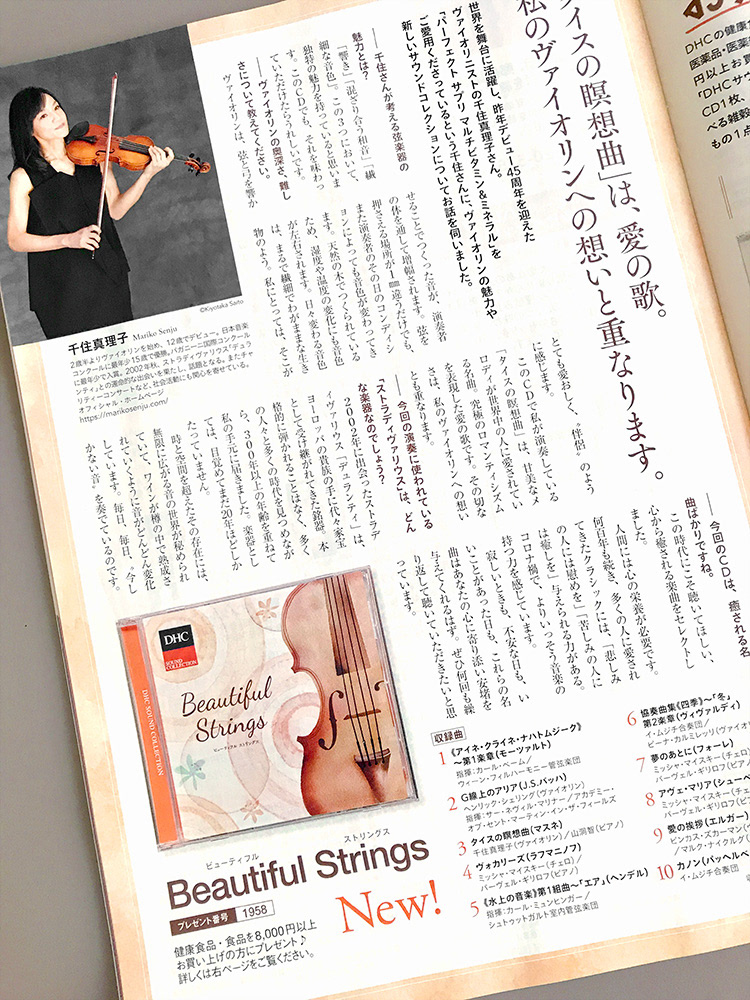 タイスの瞑想曲」は、愛の歌。
私のヴァイオリンへの想いと重なります。
世界を舞台に活躍し、昨年デビュー45周年を迎えた
ヴァイオリニストの千住真理子さん。
「パーフェクト サプリ マルチビタミン&ミネラル」を
ご愛用くださっているという千住さんに、ヴァイオリンの魅力や
新しいサウンドコレクションについてお話を伺いました。
── 千住さんが考える弦楽器の
魅力とは?
「響き」「混ざり合う和音」「繊
細な音色」。この3つにおいて、
独特の魅力を持っていると思いま
す。このCDでも、それを味わっ
ていただけたらうれしいです。
── ヴァイオリンの奥深さ、難し
さについて教えてください。
ヴァイオリンは、弦と弓を響か
せることでつくった音が、演奏者
の体を通して増幅されます。弦を
押さえる場所が1mm違うだけでも、
また演奏者のその日のコンディシ
ョンによっても音色が変わってきま
す。天然の木でつくられている
ため、湿度や温度の変化にも音色
が左右されます。日々変わる音色
は、まるで繊細でわがままな生き
物のよう。私にとっては、そこが
とても愛おしく、“伴侶”のよう
に感じます。
このCDで私が演奏している
「タイスの瞑想曲」は、甘美なメ
ロディが世界中の人に愛されてい
る名曲。究極のロマンティシズム
を表現した愛の歌です。その切な
さは、私のヴァイオリンへの想い
とも重なります。
── 今回の演奏に使われている
「ストラディヴァリウス」は、どん
な楽器なのでしょう?
2002年に出会ったストラデ
ィヴァリウス「デュランティ」は、
ヨーロッパの貴族の手に代々家宝
として受け継がれてきた銘器。本
格的に弾かれることはなく、多く
の人々と多くの時代を見つめなが
ら、300年以上の年齢を重ねて
私の手元に届きました。楽器とし
ては、目覚めてまだ20年ほどしか
たっていません。
時と空間を超えたその存在には、
無限に広がる音の世界が秘められ
ていて、ワインが樽の中で熟成さ
れていくように音がどんどん変化
しています。毎日、毎日、“今し
かない音”を奏でているのです。
── 今回のCDは、癒される名
曲ばかりですね。
この時代にこそ聴いてほしい、
心から癒される楽曲をセレクトし
ました。
人間には心の栄養が必要です。
何百年も続き、多くの人に愛され
てきたクラシックには、「悲しみ
の人には慰めを」「苦しみの人に
は癒しを」与えられる力がある。
コロナ禍で、よりいっそう音楽の
持つ力を感じています。
寂しいときも、不安な日も、い
いことがあった日も、これらの名
曲はあなたの心に寄り添い、安堵を
与えてくれるはず。ぜひ何回も繰
り返して聴いていただきたいと思
っています。
©Kiyotaka Saito
千住真理子 Mariko Senju
2歳半よりヴァイオリンを始め、12歳でデビュー。日本音楽
コンクールに最年少15歳で優勝。パガニーニ国際コンクール
に最年少で入賞。2002年秋、ストラディヴァリウス「デュラ
ンティ」との運命的な出会いを果たし、話題となる。またチャ
リティーコンサートなど、社会活動にも関心を寄せている。
オフィシャル・ホームページ
https://marikosenju.com/
DHCの健康食
医薬品・医薬
円以上お買
「DHC サウ
CD1枚、
べる雑穀
もの1点
DHC
SOUND
COLLECTION
DHC SOUND COLLECTION
Beautiful
Strings
ビューティフル ストリングス
ビューティフル ストリングス
Beautiful Strings
プレゼント番号 1958
New!
健康食品・食品を8,000円以上
お買い上げの方にプレゼント♪
詳しくは右ページをご覧ください。
収録曲
1 《アイネ・クライネ・ナハトムジーク》
〜第1楽章（モーツァルト）
指揮:カール・ベーム/
ウィーン・フィルハーモニー管弦楽団
2 G線上のアリア（J.S.バッハ）
ヘンリック・シェリング（ヴァイオリン）
指揮:サー・ネヴィル・マリナー/アカデミー・
オブ・セント・マーティン・イン・ザ・フィールズ
3 タイスの瞑想曲（マスネ）
千住真理子（ヴァイオリン）/山洞智（ピアノ）
4 ヴォカリーズ（ラフマニノフ）
ミッシャ・マイスキー（チェロ）/
パーヴェル・ギリロフ（ピアノ）
5 《水上の音楽》第1組曲〜「エア」（ヘンデル）
指揮:カール・ミュンヒンガー/
シュトゥットガルト室内管弦楽団
6 協奏曲集《四季》〜「冬」
第2楽章（ヴィヴァルディ）
イ・ムジチ合奏団/
ピーナ・カルミレッリ（ヴァイオ
7 夢のあとに（フォーレ）
ミッシャ・マイスキー（チェロ）
パーヴェル・ギリロフ（ピアノ
8 アヴェ・マリア（シューベ
ミッシャ・マイスキー（チェロ
パーヴェル・ギリロフ（ピ
9 愛の挨拶（エルガー）
ピンカス・ズーカーマン（
/マルク・ナイクルグ（
10 カノン（パッヘルベ
イ・ムジチ合奏団